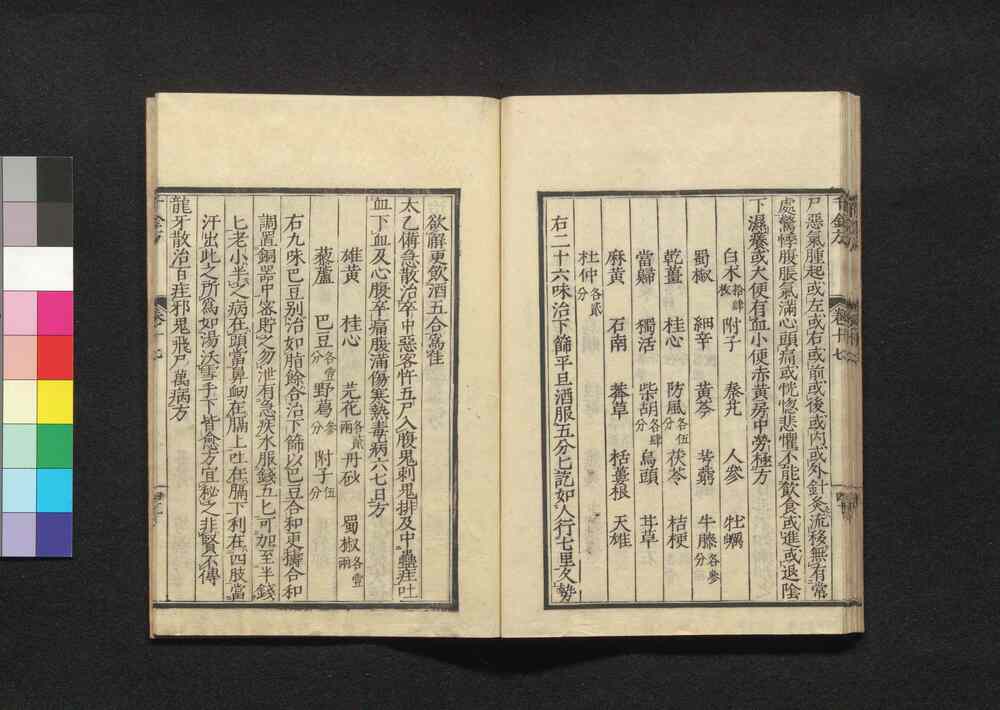 千金方
卷十七
尸惡氣腫起或左或右或前或後或内或外針灸流移無有常
處驚悸腹脹氣滿心頭痛或恍惚悲懼不能飲食或進或退陰
下濕癢或大便有血小便赤黃房中勞極方
白术拾肆枚 附子 秦艽 人參 牡蠣
蜀椒 細辛 黃芩 芎藭 牛膝各參分
乾薑 桂心 防風各伍分 茯苓 桔梗
當歸 獨活 柴胡各肆分 烏頭 甘草
麻黃 石南 莽草 栝蔞根 天雄
杜仲各貳分
右二十六味治下篩平旦酒服五分匕訖如人行七里久勢
欲解更飲酒五合爲佳
太乙備急散治卒中惡客忤五尸入腹鬼刺鬼排及中蠱疰吐
血下血及心腹卒痛腹滿傷寒熱毒病六七日方
雄黃 桂心 芫花各貳兩 丹砂 蜀椒各壹兩
藜蘆 巴豆各壹分 野葛參分 附子伍分
右九味巴豆別治如脂餘合治下篩以巴豆合和更擣合和
調置銅器中密貯之勿泄有急疾水服錢五匕可加至半錢
匕老小半之病在頭當鼻衂在膈上吐在膈下利在四肢當
汗出此之所爲如湯沃雪手下皆愈方宜秘之非賢不傳
龍牙散治百疰邪鬼飛尸萬病方
千金方
卷十七